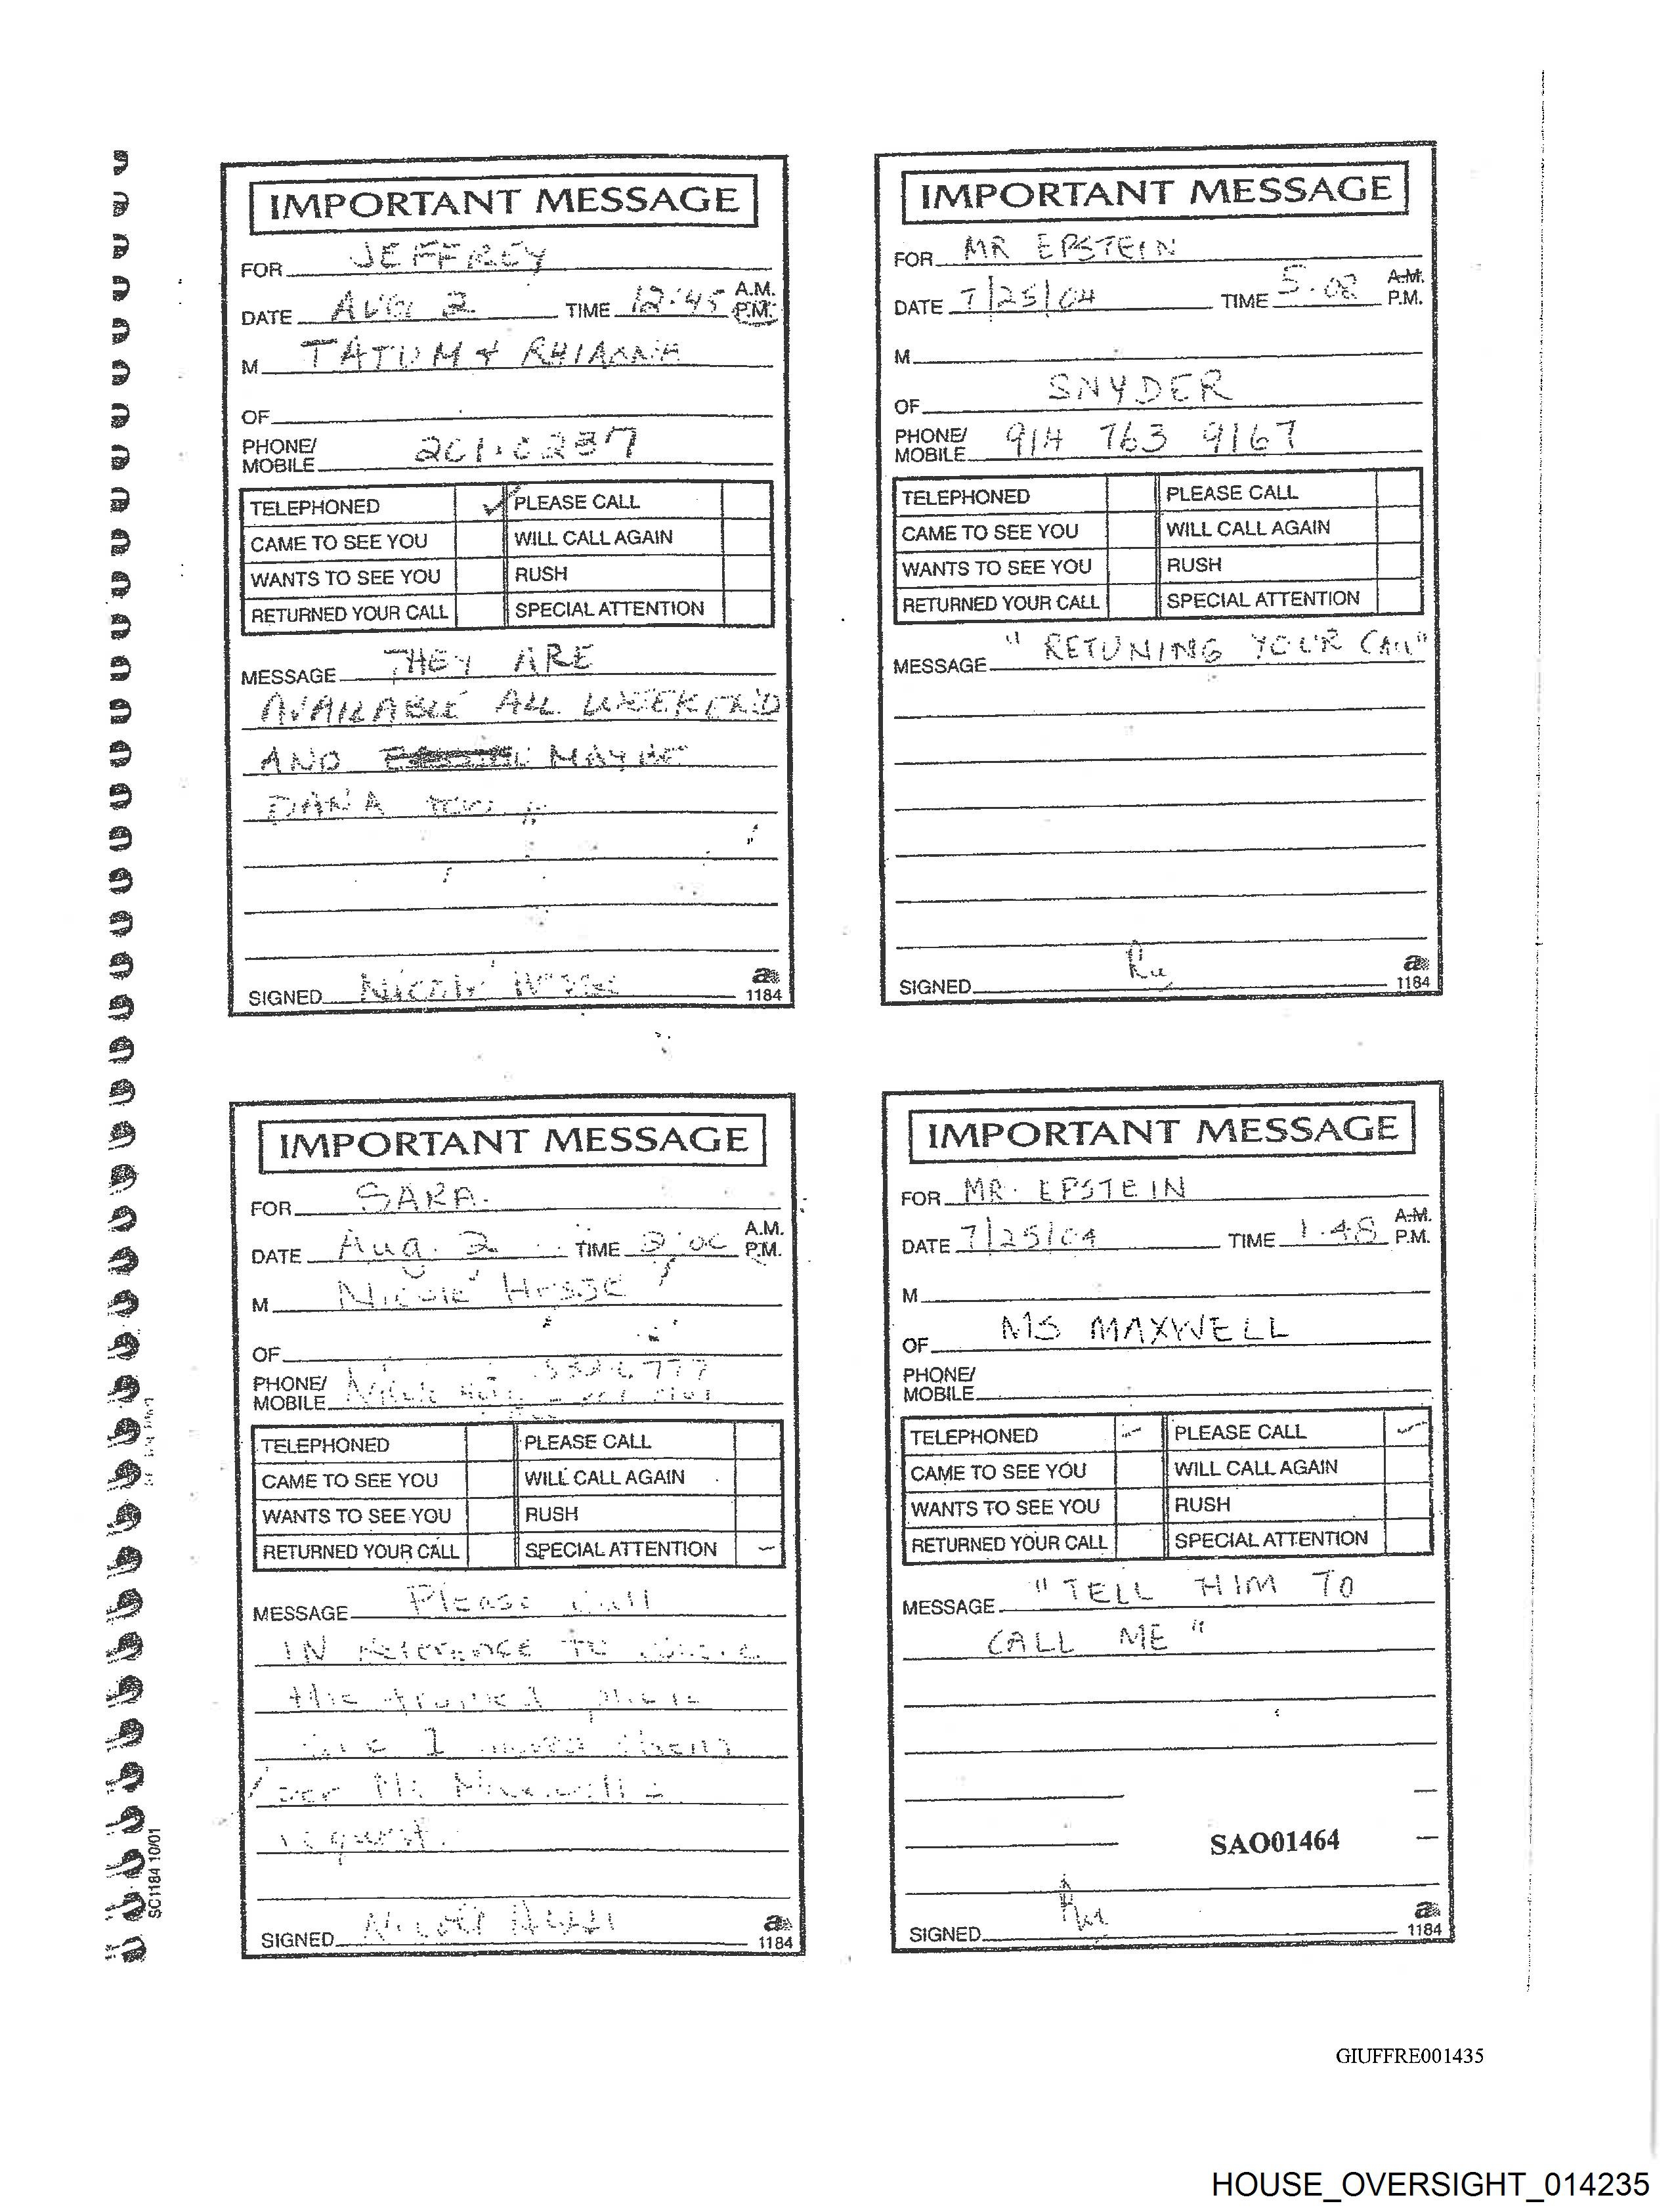 IMPORTANT MESSAGE
FOR JEFFREY
DATE AUG 2 TIME 12:45 A.M. P.M.
M TATUM & RHIANNA
OF
PHONE/ MOBILE 201.0237
TELEPHONED ✓ PLEASE CALL
CAME TO SEE YOU WILL CALL AGAIN
WANTS TO SEE YOU RUSH
RETURNED YOUR CALL SPECIAL ATTENTION
MESSAGE THEY ARE
AVAILABLE ALL WEEKEND
AND MAYBE
DANA TOO
SIGNED Nicole Hesse
a 1184
IMPORTANT MESSAGE
FOR MR EPSTEIN
DATE 7/25/04 TIME 5.08 A.M. P.M.
M
OF SNYDER
PHONE/ MOBILE 914 763 9167
TELEPHONED PLEASE CALL
CAME TO SEE YOU WILL CALL AGAIN
WANTS TO SEE YOU RUSH
RETURNED YOUR CALL SPECIAL ATTENTION
MESSAGE " RETUNING YOUR CALL"
SIGNED
a 1184
IMPORTANT MESSAGE
FOR SARA.
DATE Aug. 2 TIME 2:00 A.M. P.M.
M Nicole Hesse
OF
PHONE/ MOBILE
TELEPHONED PLEASE CALL
CAME TO SEE YOU WILL CALL AGAIN
WANTS TO SEE YOU RUSH
RETURNED YOUR CALL SPECIAL ATTENTION –
MESSAGE Please call
IN reference to
the
I moved them
per Ms Maxwell's
request.
SIGNED Nicole Hesse
a 1184
IMPORTANT MESSAGE
FOR MR. EPSTEIN
DATE 7/25/04 TIME 1.48 A.M. P.M.
M
OF MS MAXWELL
PHONE/ MOBILE
TELEPHONED – PLEASE CALL –
CAME TO SEE YOU WILL CALL AGAIN
WANTS TO SEE YOU RUSH
RETURNED YOUR CALL SPECIAL ATTENTION
MESSAGE "TELL HIM TO
CALL ME"
SAO01464
SIGNED
a 1184
SC1184 10/01
GIUFFRE001435
HOUSE_OVERSIGHT_014235